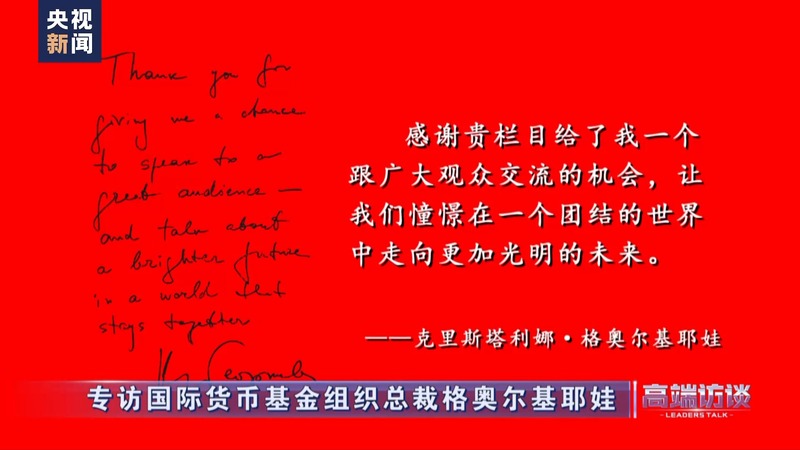 央视
新闻
Thank you for
giving me a chance
to speak to a
great audience —
and talk about
a brighter future
in a world that
stays together
感谢贵栏目给了我一个
跟广大观众交流的机会，让
我们憧憬在一个团结的世界
中走向更加光明的未来。
——克里斯塔利娜·格奥尔基耶娃
专访国际货币基金组织总裁格奥尔基耶娃
高端访谈
-LEADERS TALK-